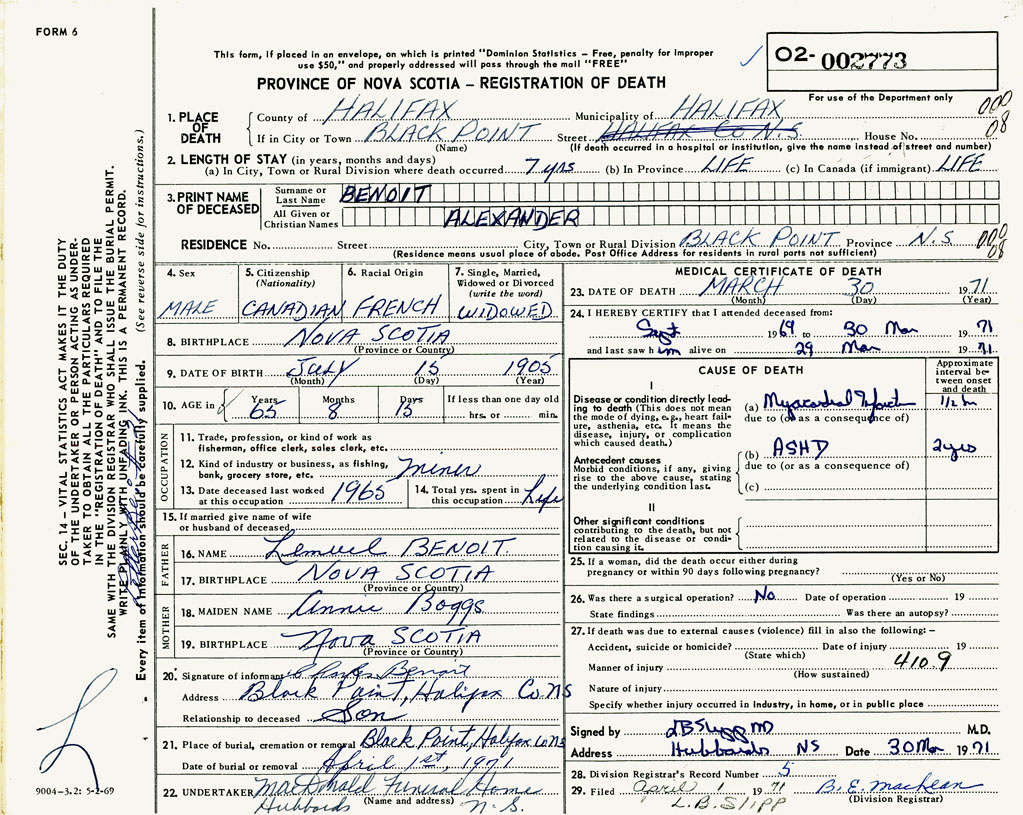 FORM 6
This form, if placed in an envelope, on which is printed "Dominion Statistics – Free, penalty for improper
use $50," and properly addressed will pass through the mail "FREE"
02-002773
PROVINCE OF NOVA SCOTIA – REGISTRATION OF DEATH
For use of the Department only
1. PLACE OF DEATH
County of HALIFAX Municipality of HALIFAX 000
If in City or Town BLACK POINT Street HALIFAX Co N.S. House No. 08
(Name) (If death occurred in a hospital or institution, give the name instead of street and number)
2. LENGTH OF STAY (in years, months and days)
(a) In City, Town or Rural Division where death occurred 7 yrs (b) In Province LIFE (c) In Canada (if immigrant) LIFE
3. PRINT NAME OF DECEASED
Surname or Last Name BENOIT
All Given or Christian Names ALEXANDER
RESIDENCE No. Street City, Town or Rural Division BLACK POINT Province N.S. 000 08
(Residence means usual place of abode. Post Office Address for residents in rural parts not sufficient)
4. Sex MALE
5. Citizenship (Nationality) CANADIAN
6. Racial Origin FRENCH
7. Single, Married, Widowed or Divorced (write the word) WIDOWED
8. BIRTHPLACE NOVA SCOTIA
(Province or Country)
9. DATE OF BIRTH JULY 15 1905
(Month) (Day) (Year)
10. AGE in Years 65 Months 8 Days 15 If less than one day old
hrs. or min.
OCCUPATION
11. Trade, profession, or kind of work as
fisherman, office clerk, sales clerk, etc.
12. Kind of industry or business, as fishing,
bank, grocery store, etc. miner
13. Date deceased last worked at this occupation 1965
14. Total yrs. spent in this occupation Life
15. If married give name of wife
or husband of deceased
FATHER
16. NAME Lemuel BENOIT
17. BIRTHPLACE NOVA SCOTIA
(Province or Country)
MOTHER
18. MAIDEN NAME Annie Boggs
19. BIRTHPLACE Nova SCOTIA
(Province or Country)
20. Signature of informant Benoit
Address Black Point, Halifax Co NS
Relationship to deceased Son
21. Place of burial, cremation or removal Black Point, Halifax Co NS
Date of burial or removal April 1st, 1971
22. UNDERTAKER MacDonald Funeral Home
(Name and address)
Hubbards N.S.
MEDICAL CERTIFICATE OF DEATH
23. DATE OF DEATH MARCH 30 1971
(Month) (Day) (Year)
24. I HEREBY CERTIFY that I attended deceased from:
Sept 1969 to 30 Mar 1971
and last saw him alive on 29 Mar 1971
CAUSE OF DEATH
Approximate interval between onset and death
I
Disease or condition directly leading
to death (This does not mean
the mode of dying, e.g., heart failure,
asthenia, etc. It means the
disease, injury, or complication
which caused death.)
(a) Myocardial Infarct 1/2 hr
due to (or as a consequence of)
Antecedent causes
Morbid conditions, if any, giving
rise to the above cause, stating
the underlying condition last.
(b) ASHD 2 yrs
due to (or as a consequence of)
(c)
II
Other significant conditions
contributing to the death, but not
related to the disease or condition
causing it.
25. If a woman, did the death occur either during
pregnancy or within 90 days following pregnancy?
(Yes or No)
26. Was there a surgical operation? No Date of operation 19
State findings Was there an autopsy?
27. If death was due to external causes (violence) fill in also the following: –
Accident, suicide or homicide? Date of injury 19
(State which)
Manner of injury 410.9
(How sustained)
Nature of injury
Specify whether injury occurred in industry, in home, or in public place
Signed by M.D.
Address Hubbards NS Date 30 Mar 1971
28. Division Registrar's Record Number 5
29. Filed April 1 1971 B. E. MacLean
(Division Registrar)
L.B. SLIPP
SEC. 14 – VITAL STATISTICS ACT MAKES IT THE DUTY
OF THE UNDERTAKER OR PERSON ACTING AS UNDER-
TAKER TO OBTAIN ALL THE PARTICULARS REQUIRED
IN THE "REGISTRATION OF DEATH" AND TO FILE THE
SAME WITH THE DIVISION REGISTRAR WHO SHALL ISSUE THE BURIAL PERMIT.
WRITE PLAINLY WITH UNFADING INK. THIS IS A PERMANENT RECORD.
Every item of information should be carefully supplied. (See reverse side for instructions.)
9004–3.2: 5-2-69